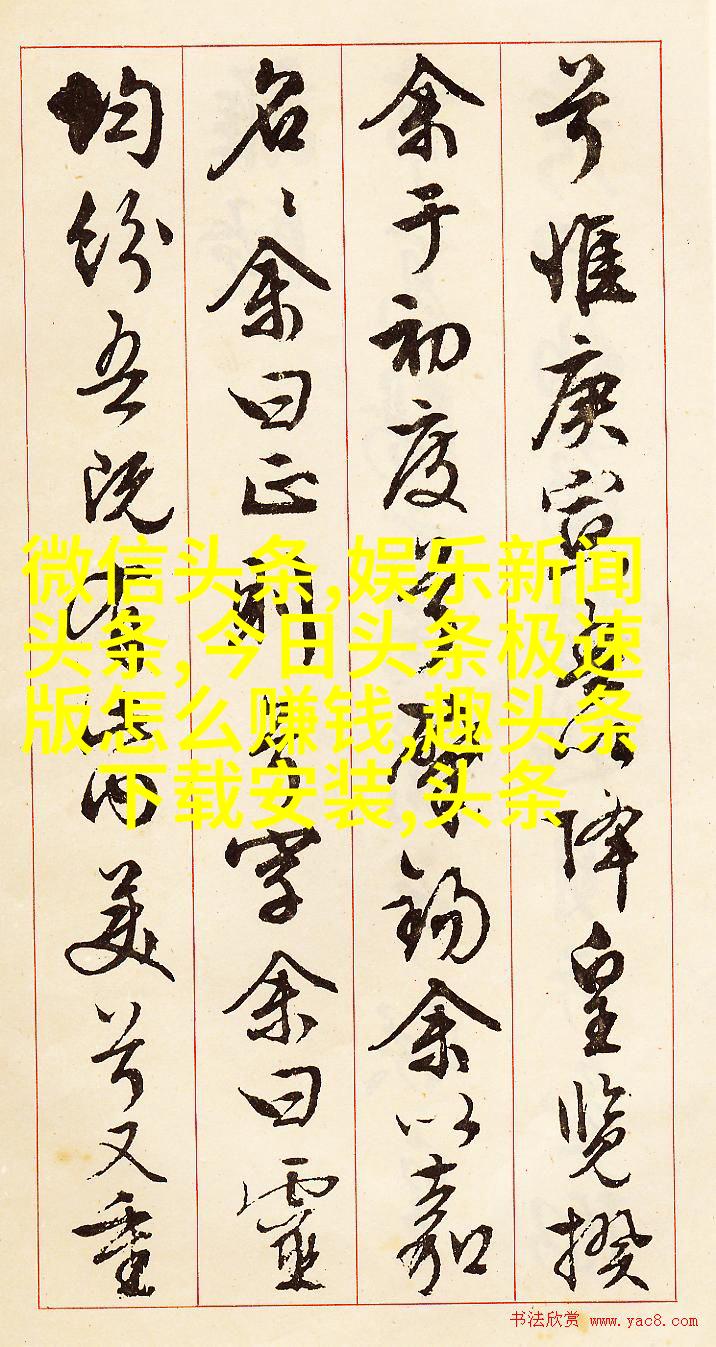 兮惟庚寅吾以降皇覽揆
余于初度兮肇錫余以嘉
名〻余曰正則兮字余曰靈
均紛吾既有此内美兮又重
微信头条,娱乐新闻
头条,今日头条极速
版怎么赚钱,趣头条
下载安装,头条
书法欣赏 www.yac8.com